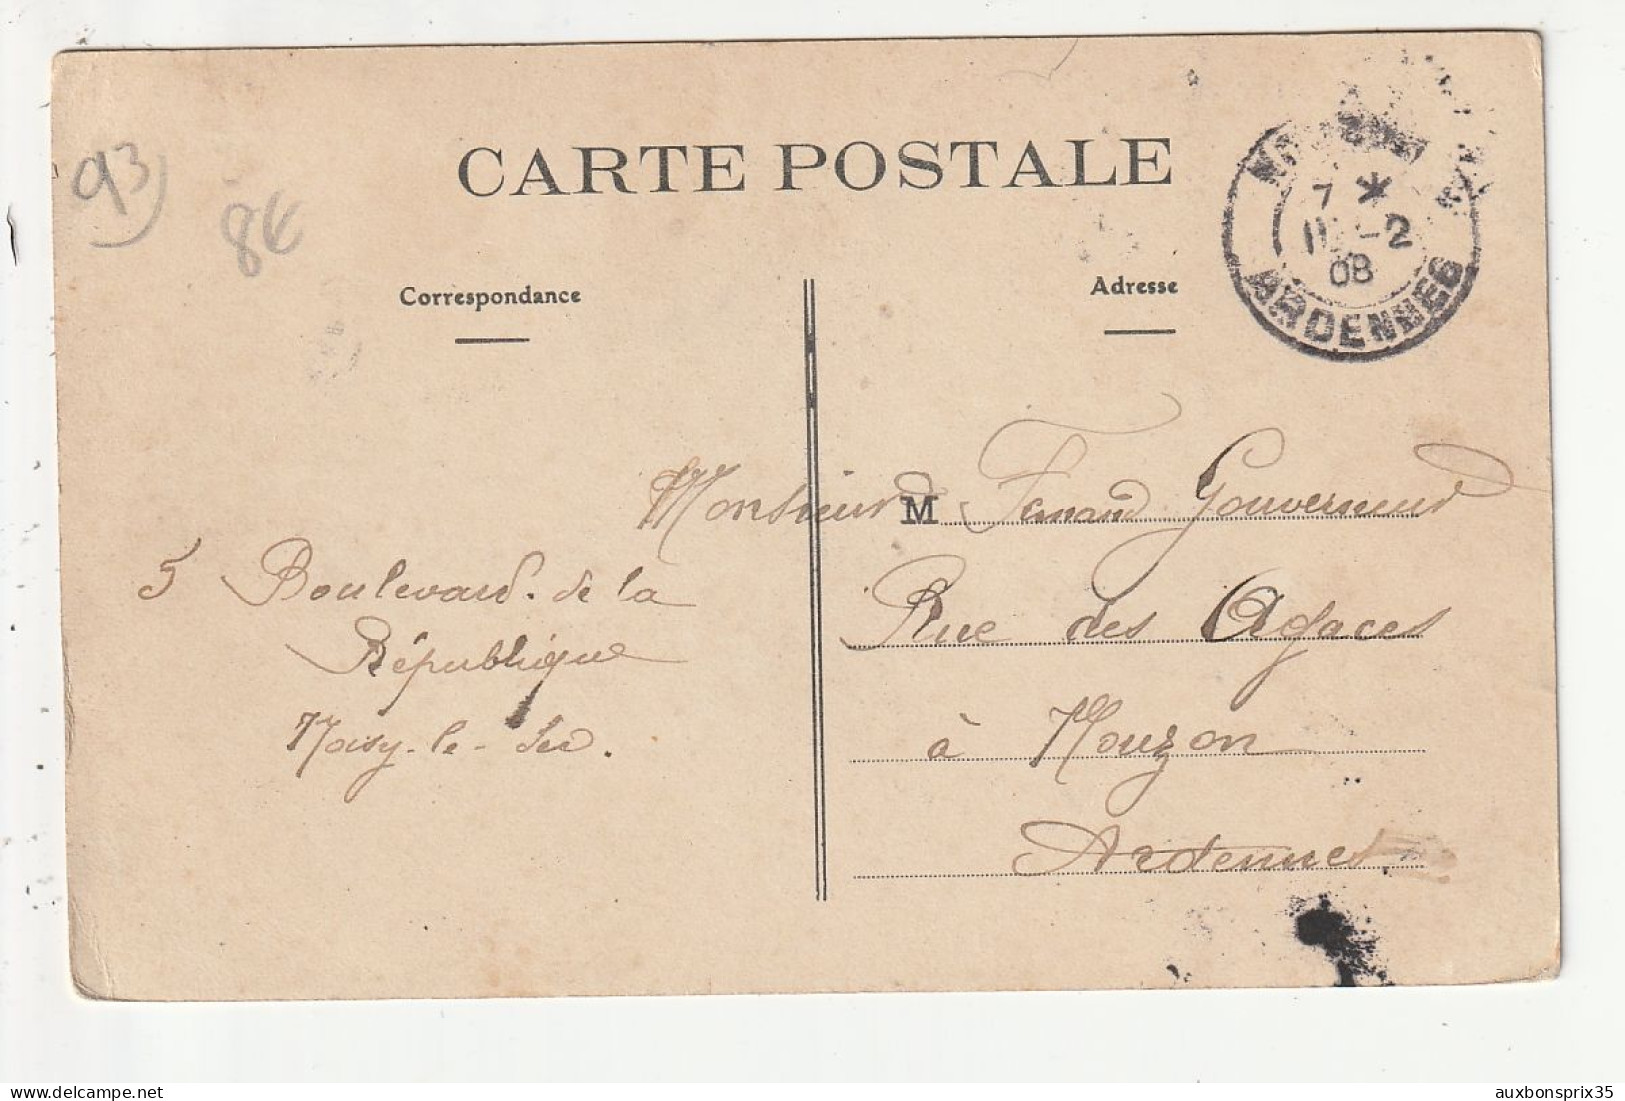 93
8€
CARTE POSTALE
7 *
11 -2
08
ARDENNES
Correspondance
Adresse
Monsieur M Fernand Gouverneur
Rue des Agaces
à Mouzon
Ardennes
5 Boulevard de la
République
Noisy-le-Sec.
auxbonsprix35